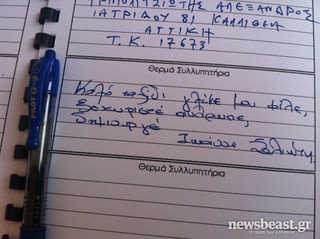 ΤΡΙΠΟΛΙΤΣΙΩΤΗΣ ΑΛΕΞΑΝΔΡΟΣ
ΙΑΤΡΙΔΟΥ 81 ΚΑΛΛΙΘΕΑ
ΑΤΤΙΚΗ
Τ.Κ. 17673
Θερμά Συλλυπητήρια
Καλό ταξίδι γλυκέ μου φίλε,
ξεχωριστέ άνθρωπε,
δημιουργέ
Θερμά Συλλυπητήρια
PILOT G-2
newsbeast.gr